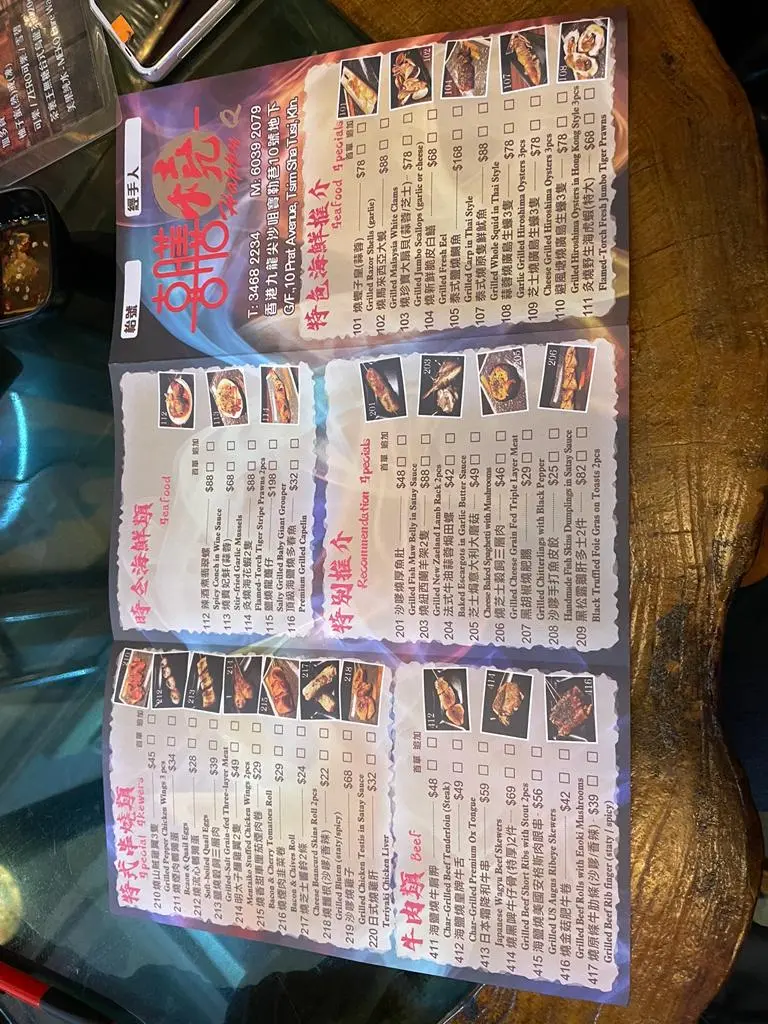 給號
經手人
燒
Happy
T: 3468 2234 M: 6039 2079
香港九龍尖沙咀寶勒巷10號地下
G/F.,10 Prat Avenue, Tsim Sha Tusi, Kln.
特色海鮮推介
Seafood Specials
首單 追加
101 燒蟶子皇(蒜蓉) $78
Grilled Razor Shells (garlic)
102 燒馬來西亞大蜆 $88
Grilled Malaysia White Clams
103 燒珍寶大扇貝(蒜蓉/芝士) $78
Grilled Jumbo Scallops (garlic or cheese)
104 燒新鮮脆皮白鱔 $68
Grilled Fresh Eel
105 泰式鹽燒鯛魚 $168
Grilled Carp in Thai Style
107 泰式燒原隻鮮魷魚 $88
Grilled Whole Squid in Thai Style
108 蒜蓉燒廣島生蠔3隻 $78
Garlic Grilled Hiroshima Oysters 3pcs
109 芝士燒廣島生蠔3隻 $78
Cheese Grilled Hiroshima Oysters 3pcs
110 避風塘燒廣島生蠔3隻 $78
Grilled Hiroshima Oysters in Hong Kong Style 3pcs
111 炙燒野生海虎蝦(特大) $68
Flamed-Torch Fresh Jumbo Tiger Prawns
101
102
104
107
108
時令海鮮類
Seafood
首單 追加
112 辣酒煮翡翠螺 $88
Spicy Conch in Wine Sauce
113 燒貴妃蚌(蒜蓉) $68
Stir-fried Garlic Mussels
114 炙燒海花蝦2隻 $88
Flamed-Torch Tiger Stripe Prawns 2pcs
115 鹽燒龍躉仔 $198
Salty Grilled Baby Giant Grouper
116 頂級海鹽燒多春魚 $32
Premium Grilled Capelin
112
113
114
特別推介
Recommendation Specials
首單 追加
201 沙嗲燒厚魚肚 $48
Grilled Fish Maw Belly in Satay Sauce
203 燒紐西蘭羊架2隻 $88
Grilled New Zaeland Lamb Rack 2pcs
204 法式牛油蒜蓉焗田螺 $42
Baked Escargots in Garlic Butter Sauce
205 芝士焗意大利大蘑菇 $49
Cheese Baked Spaghetti with Mushrooms
206 燒芝士穀飼三層肉 $46
Grilled Cheese Grain Fed Triple Layer Meat
207 黑胡椒燒肥腸 $29
Grilled Chitterlings with Black Pepper
208 沙嗲手打魚皮餃 $25
Handmade Fish Skins Dumplings in Satay Sauce
209 黑松露鵝肝多士2件 $82
Black Truffled Foie Gras on Toasts 2pcs
201
203
205
206
特式串燒類
Special Skewers
首單 追加
210 燒山賊雞翼3隻 $45
Grilled Pepper Chicken Wings 3 pcs
211 燒煙肉鵪鶉蛋 $34
Bacon & Quail Eggs
212 燒流心鵪鶉蛋 $28
Soft-boiled Quail Eggs
213 鹽燒穀飼三層肉 $39
Grilled-Salt Grain-fed Three-layer Meat
214 明太子釀雞翼2隻 $49
Mentaiko Stuffed Chicken Wings 2pcs
215 燒香甜車厘茄煙肉卷 $29
Bacon & Cherry Tomatoes Roll
216 燒煙肉韭菜卷 $29
Bacon & Chives Roll
217 燒芝士響鈴2條 $24
Cheese Beancurd Skins Roll 2pcs
218 燒麵根(沙嗲/香辣) $22
Grilled Gluten (staty/spicy)
219 沙嗲燒雞子 $68
Grilled Chicken Testis in Satay Sauce
220 日式燒雞肝 $32
Teriyaki Chicken Liver
212
213
214
215
217
218
牛肉類 Beef
首單 追加
411 海鹽燒牛肩胛 $48
Char-Grilled Beef Tenderloin (Steak)
412 海鹽燒皇牌牛舌 $49
Char-Grilled Premium Ox Tongue
413 日本霜降和牛串 $59
Japanese Wagyu Beef Skewers
414 燒黑啤牛仔骨(特厚)2件 $69
Grilled Beef Short Ribs with Stout 2pcs
415 海鹽燒美國安格斯肉眼串 $56
Grilled US Angus Ribeye Skewers
416 燒金菇肥牛卷 $42
Grilled Beef Rolls with Enoki Mushrooms
417 燒原條牛肋條(沙嗲/香辣) $39
Grilled Beef Rib finger (staty / spicy)
412
414
416